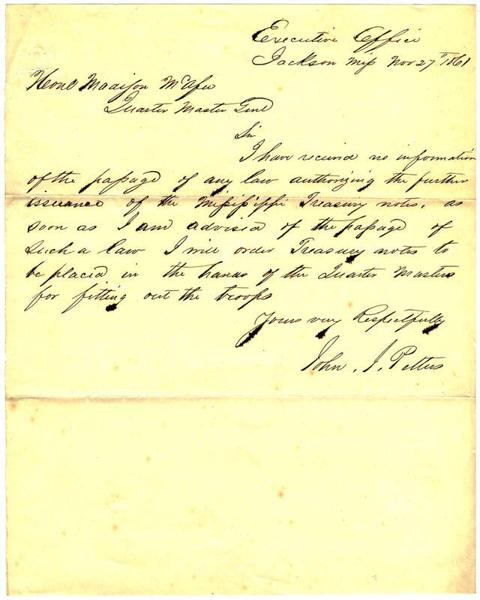 Executive Office
Jackson Miss Nov 27th 1861
Honl Madison McAfee
Quarter Master Genl
Sir
I have received no information
of the passage of any law authorizing the further
issuance of the Mississippi Treasury notes, as
soon as I am advised of the passage of
such a law I will order Treasury notes to
be placed in the hands of the Quarter Masters
for fitting out the troops
Yours very Respectfully
John J. Pettus